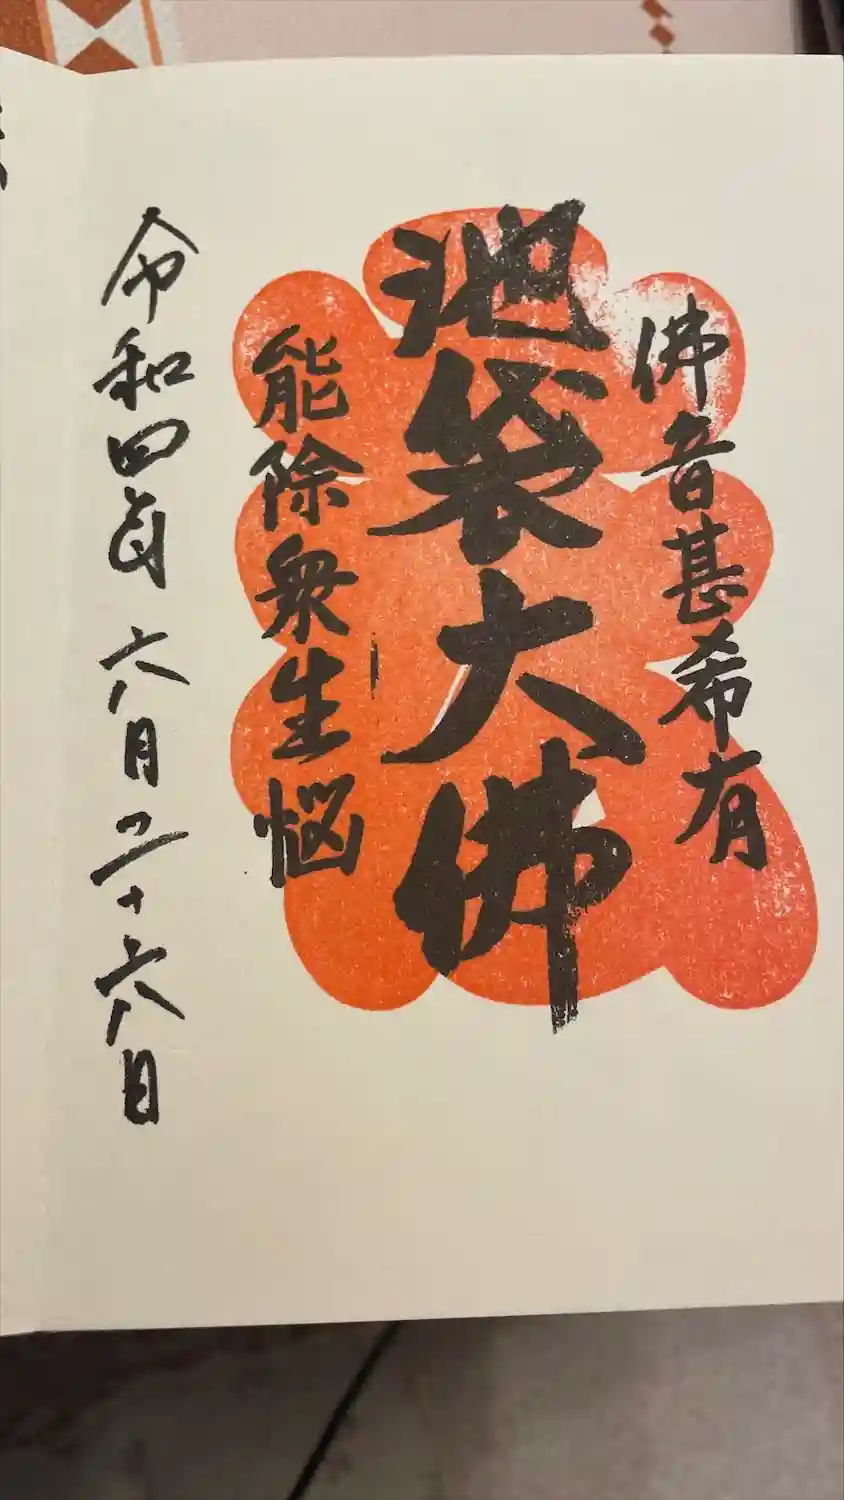 佛音甚希有
池袋大佛
能除衆生悩
令和四年 六月二十六日